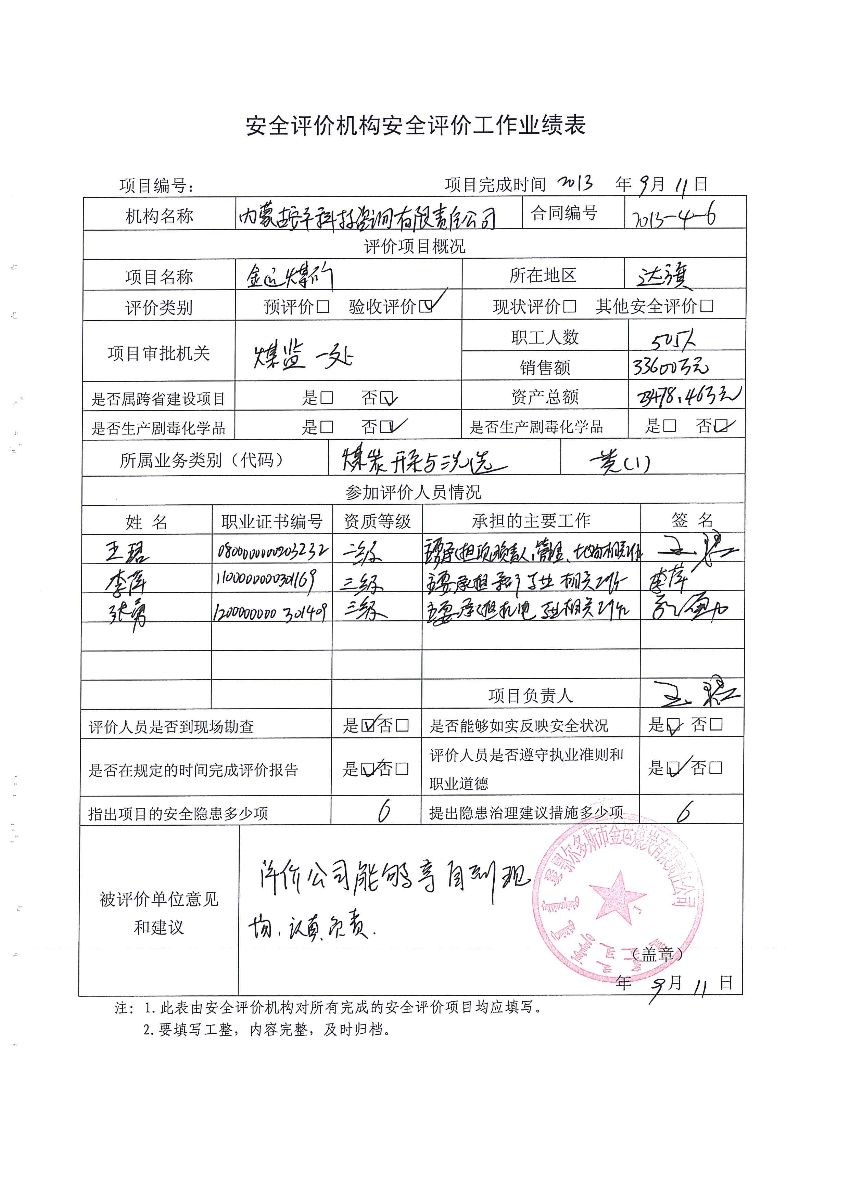 安全评价机构安全评价工作业绩表
项目编号： 项目完成时间 2013 年 9月 11日
机构名称 内蒙古安平科技咨询有限责任公司 合同编号 2013-4-6
评价项目概况
项目名称 金运煤矿 所在地区 达旗
评价类别 预评价□ 验收评价☑ 现状评价□ 其他安全评价□
项目审批机关 煤监一处 职工人数 505人
销售额 33600万元
是否属跨省建设项目 是□ 否☑ 资产总额 478.46万元
是否生产剧毒化学品 是□ 否☑ 是否生产剧毒化学品 是□ 否☑
所属业务类别（代码） 煤炭开采与洗选 (1)
参加评价人员情况
姓 名 职业证书编号 资质等级 承担的主要工作 签 名
王珺 0800000000203232 二级 主要承担项目负责人、管理、
李萍 1100000000301169 三级 主要承担 专业相关工作 李萍
张勇 1200000000301409 三级 主要承担机电专业相关工作 张勇
项目负责人 王珺
评价人员是否到现场勘查 是☑否□ 是否能够如实反映安全状况 是☑ 否□
是否在规定的时间完成评价报告 是☑否□ 评价人员是否遵守执业准则和
职业道德 是☑否□
指出项目的安全隐患多少项 6 提出隐患治理建议措施多少项 6
被评价单位意见
和建议
评价公司能够亲自到现
场，认真负责.
鄂尔多斯市金运煤炭有限责任公司
（盖章）
年 9月 11 日
注：1.此表由安全评价机构对所有完成的安全评价项目均应填写。
2.要填写工整，内容完整，及时归档。